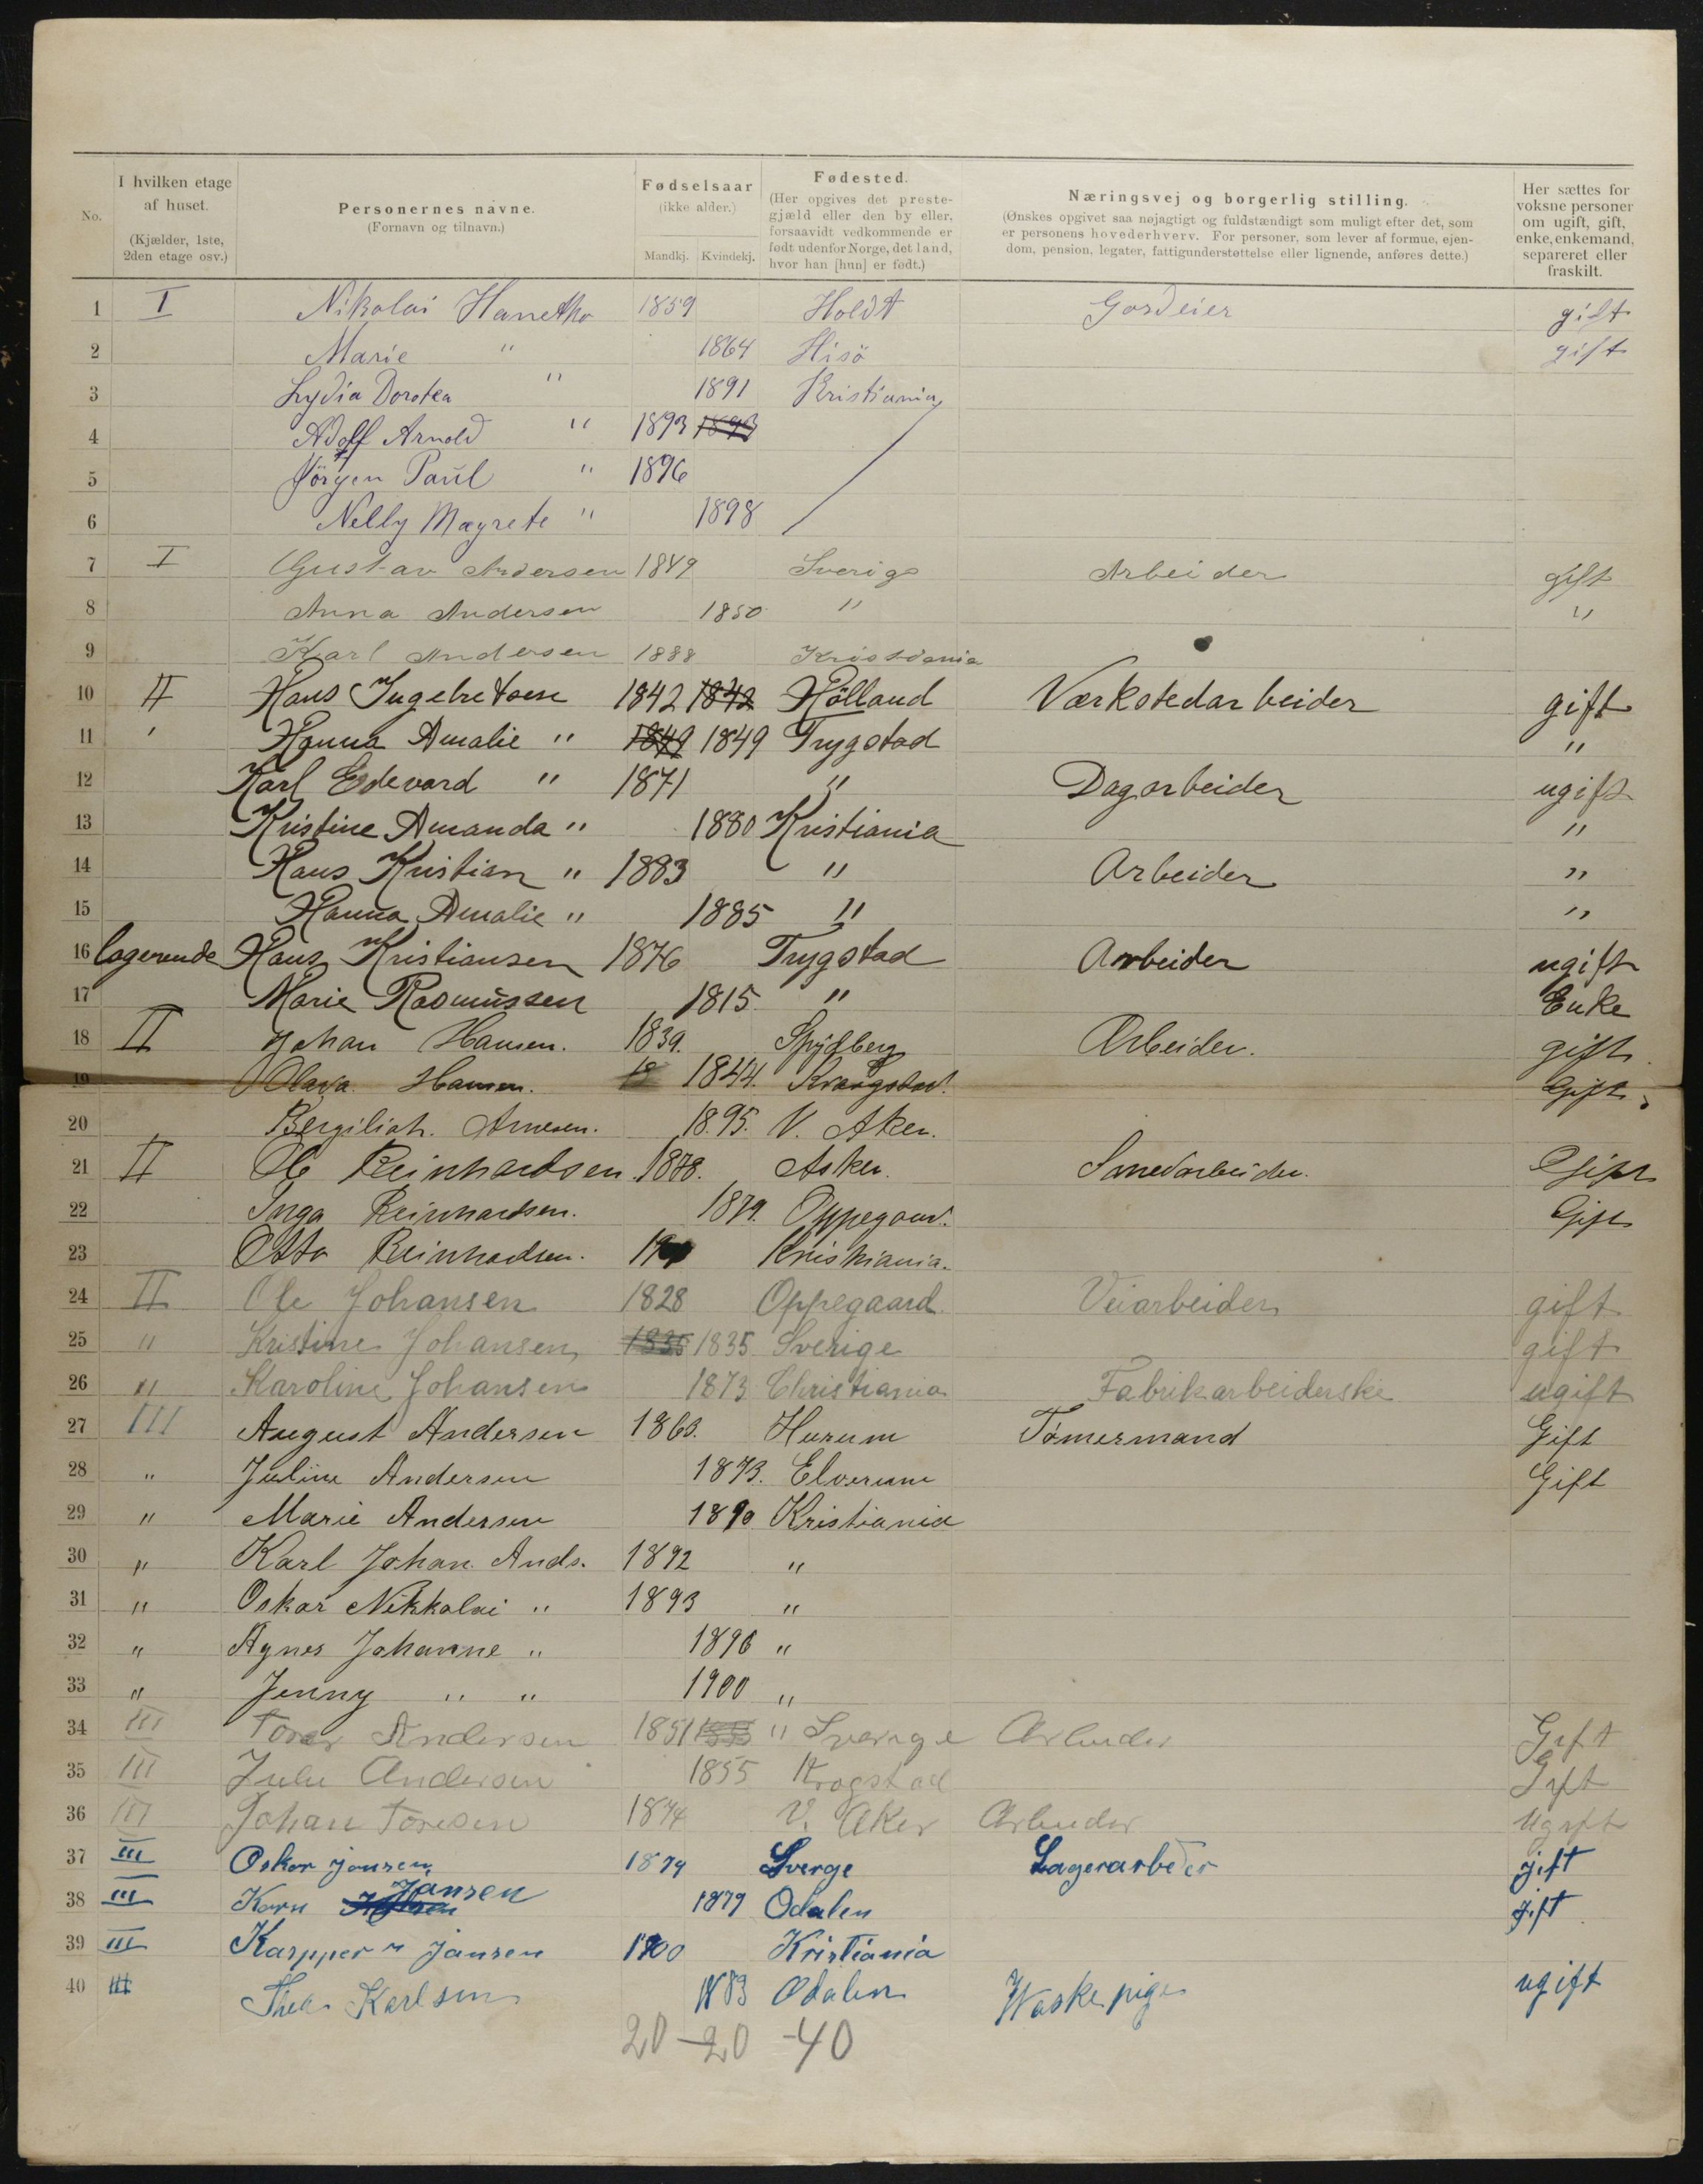 No.
I hvilken etage af huset. (Kjælder, 1ste, 2den etage osv.)
Personernes navne. (Fornavn og tilnavn.)
Fødselsaar (ikke alder.) Mandkj. Kvindekj.
Fødested. (Her opgives det prestegjæld eller den by eller, forsaavidt vedkommende er født udenfor Norge, det land, hvor han [hun] er født.)
Næringsvej og borgerlig stilling. (Ønskes opgivet saa nøjagtigt og fuldstændigt som muligt efter det, som er personens hovederhverv. For personer, som lever af formue, ejendom, pension, legater, fattigunderstøttelse eller lignende, anføres dette.)
Her sættes for voksne personer om ugift, gift, enke, enkemand, separeret eller fraskilt.
1 I Nikolai Hanetho 1859 Holdt Gordeier gift
2 Marie " 1864 Hisö gift
3 Lydia Dorotea " 1891 Kristiania
4 Adolf Arnold " 1893 1893
5 Jörgen Paul " 1896
6 Nelly Magrete " 1898
7 I Gustav Andersen 1849 Sverige Arbeider gift
8 Anna Andersen 1850 " "
9 Karl Andersen 1888 Kristiania
10 II Hans Ingebretsen 1842 1842 Hölland Værkstedarbeider gift
11 ' Hanna Amalie " 1849 1849 Trygstad "
12 Karl Edevard " 1871 " Dagarbeider ugift
13 Kristine Amanda " 1880 Kristiania "
14 Hans Kristian " 1883 " Arbeider "
15 Hanna Amalie " 1885 " "
16 logerende Hans Kristiansen 1876 Trygstad Arbeider ugift
17 Marie Rasmussen 1815 " Enke
18 II Johan Hansen. 1839. Spydberg Arbeider. gift
19 Olava Hansen. 18 1844. Kraagstad. Gift
20 Bergiliot. Arnesen. 1895. V. Aker.
21 II Ole Reinhardsen. 1878. Asker. Smedarbeider. Gift
22 Inga Reinhardsen. 1879. Oppegaard. Gift
23 Otto Reinhardsen. Kristiania.
24 II Ole Johansen 1828 Oppegaard. Veiarbeider gift
25 " Kristine Johansen 1835 1835 Sverige gift
26 " Karoline Johansen 1873 Christiania Fabrikarbeiderske ugift
27 III August Andersen 1863. Hurum Tømermand Gift
28 " Juline Andersen 1873. Elverum Gift
29 " Marie Andersen 1890 Kristiania
30 " Karl Johan Ands. 1892 "
31 " Oskar Nikkolai " 1893 "
32 " Agnes Johanne " 1896 "
33 " Jenny " " 1900 "
34 III Tore Andersen 1851 " Sverige Arbeider Gift
35 III Julie Andersen 1855 Krogstad Gift
36 III Johan Toresen 1874 V. Aker Arbeider Ugift
37 III Oskar Jansen 1879 Sverge Lagerarbeder gift
38 III Karn Jansen 1879 Odalen gift
39 III Kaspper " Jansen 1900 Kristiania
40 III Thea Karlsen 1883 Odalen Waskepige ugift
20 - 20 - 40